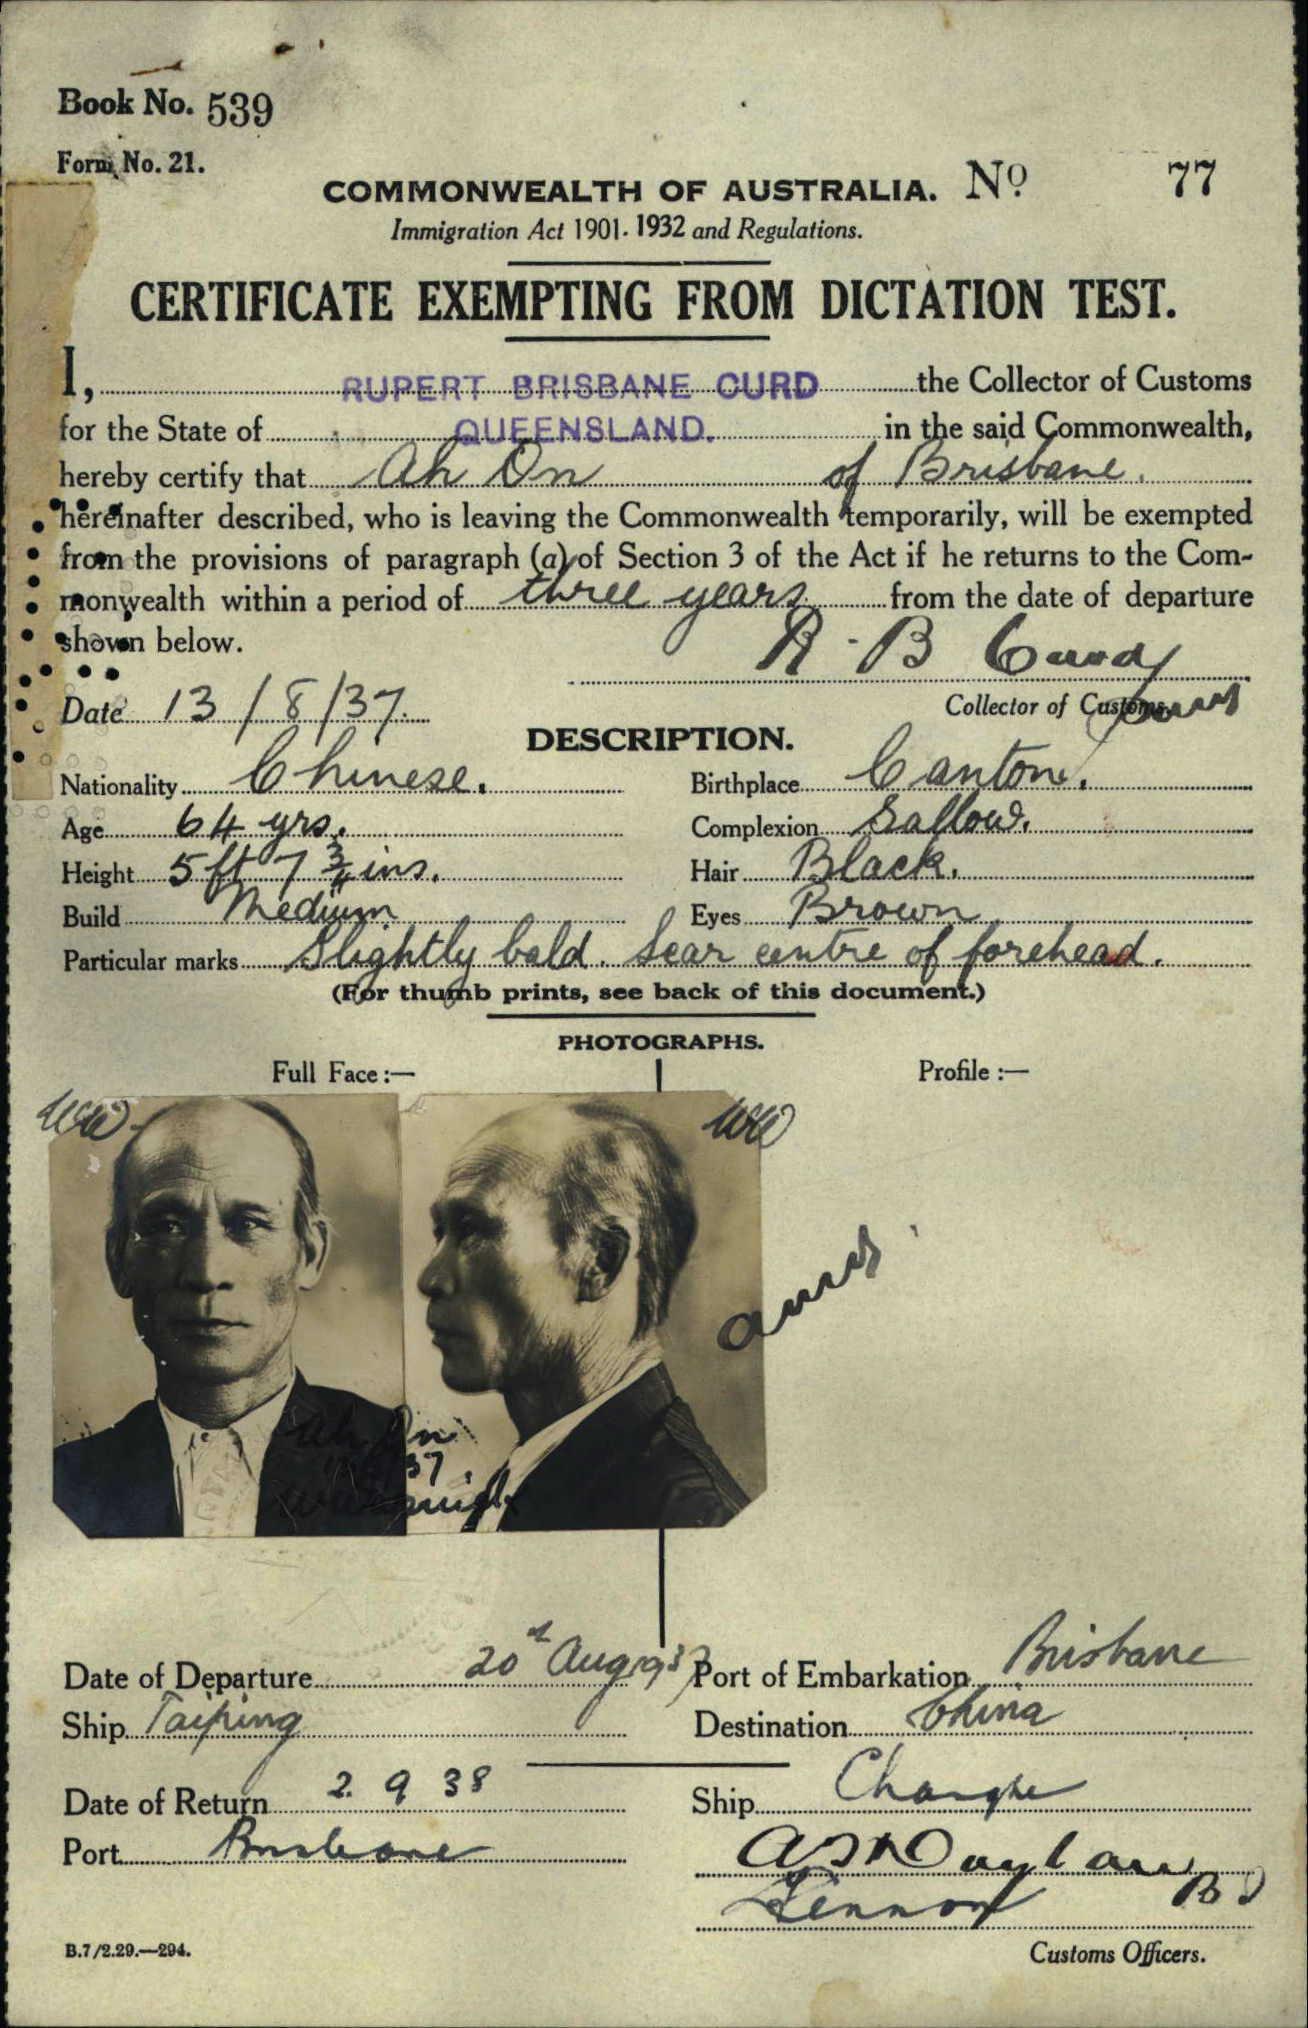 Book No. 539
Form No. 21.
COMMONWEALTH OF AUSTRALIA. Nº 77
Immigration Act 1901-1932 and Regulations.
CERTIFICATE EXEMPTING FROM DICTATION TEST.
I, RUPERT BRISBANE CURD the Collector of Customs
for the State of QUEENSLAND. in the said Commonwealth,
hereby certify that Ah On of Brisbane.
hereinafter described, who is leaving the Commonwealth temporarily, will be exempted
from the provisions of paragraph (a) of Section 3 of the Act if he returns to the Com-
monwealth within a period of three years from the date of departure
shown below.
R. B Curd
Date 13/8/37. Collector of Customs
DESCRIPTION.
Nationality Chinese. Birthplace Canton.
Age 64 yrs. Complexion Sallow.
Height 5 ft 7 3/4 ins. Hair Black.
Build Medium Eyes Brown
Particular marks Slightly bald. Scar centre of forehead.
(For thumb prints, see back of this document.)
PHOTOGRAPHS.
Full Face :— Profile :—
Ah On
37.
Date of Departure 20th Aug 1937 Port of Embarkation Brisbane
Ship Taiping Destination China
Date of Return 2. 9 38 Ship Changte
Port Brisbane
Lennon
Customs Officers.
B.7/2.29.—294.